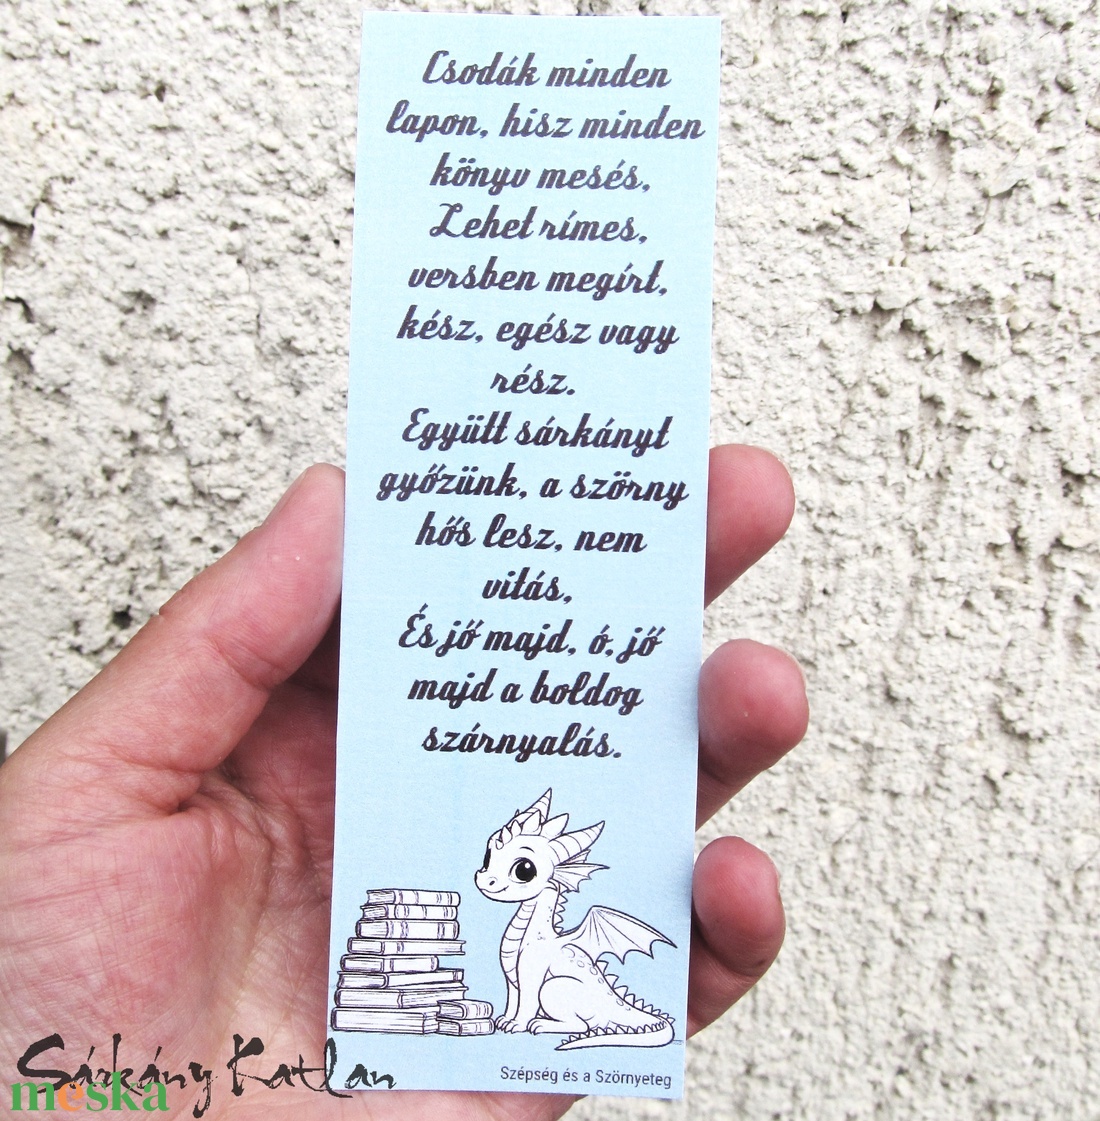 Csodák minden
lapon, hisz minden
könyv mesés,
Lehet rímes,
versben megírt,
kész, egész vagy
rész.
Együtt sárkányt
győzünk, a szörny
hős lesz, nem
vitás,
És jő majd, ó, jő
majd a boldog
szárnyalás.
Szépség és a Szörnyeteg
Sárkány Katlan
meska